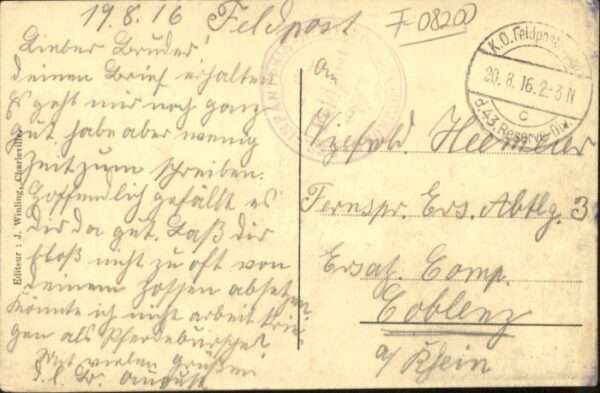 19.8.16 Feldpost
F 0820
Lieber Bruder!
deinen Brief erhalten
Es geht mir noch ganz
gut, habe aber wenig
Zeit zum schreiben.
Hoffentlich gefällt es
Dir da gut. Laß dir
bloß nicht zu oft von
deinem absetzen
Könnte ich nicht arbeit krie-
gen als Pferdebursche
Mit vielen Grüßen
d. l. Br. August
An
Vizefeldw.
Fernspr. Ers. Abtlg. 3
Ersatz Comp.
Coblenz
a/Rhein
K.D. Feldpost
20.8.16. 2-3 N
c
d. 43. Reserve-Div.
Editeur : J. Winling, Charleville